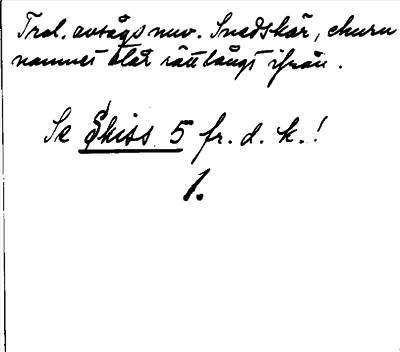 Trol. avsågs nuv. Snedskär, ehuru
namnet låt rätt långt ifrån.
Se Skiss 5 fr. d. k.!
1.